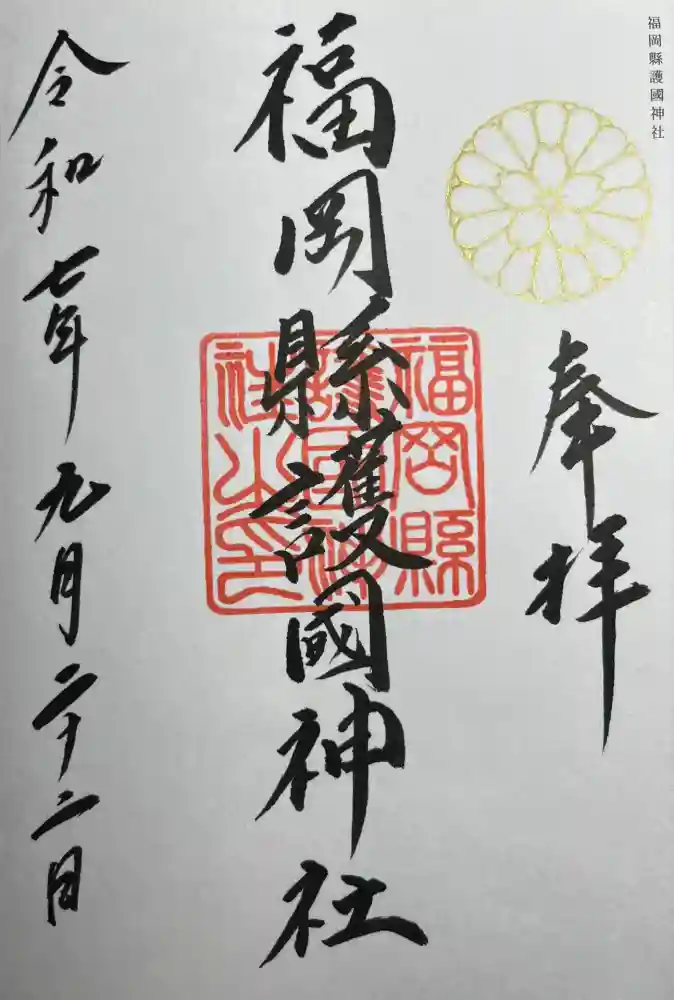 福岡縣護國神社
奉拝
福岡縣護國神社
福岡縣
護國神
社之印
令和七年九月二十二日